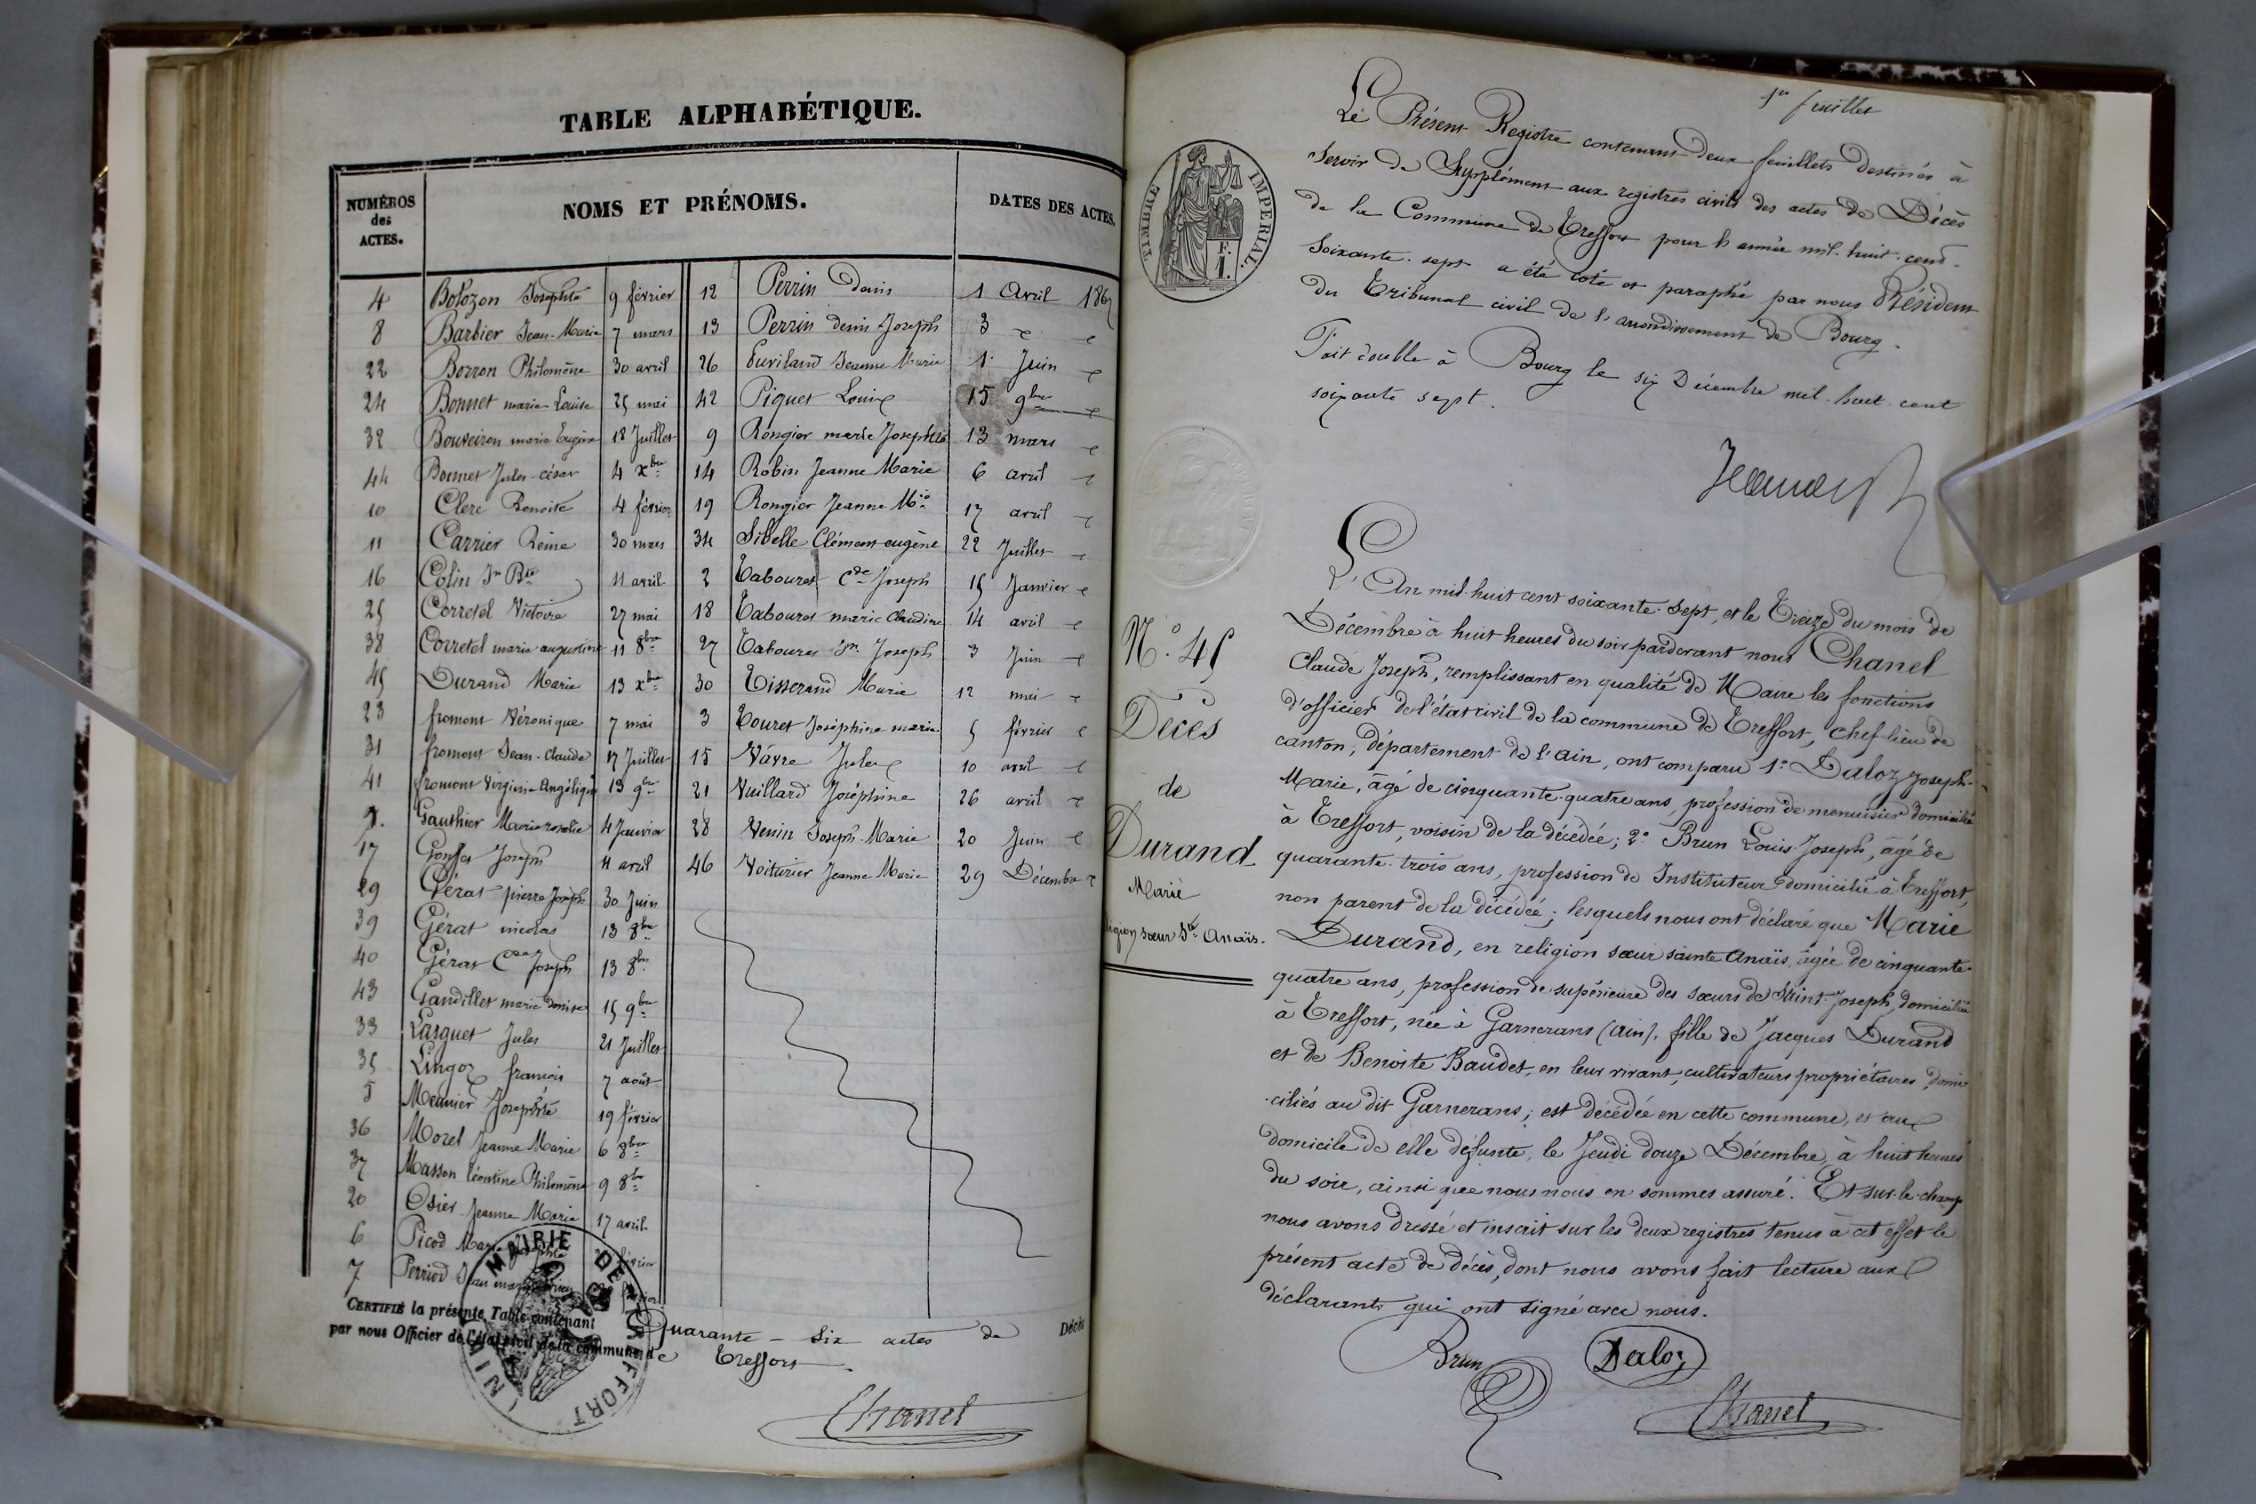 TABLE ALPHABÉTIQUE.
NUMÉROS des ACTES. NOMS ET PRÉNOMS. DATES DES ACTES.
4 Bolozon Josephte 9 février 12 Perrin Denis 1 Avril 1867
8 Barbier Jean-Marie 7 mars 13 Perrin denis Joseph 3
22 Borron Philomène 30 avril 26 Puviland Jeanne Marie 1er Juin
24 Bonnet marie Louise 25 mai 42 Piquet Louis 15 9bre
32 Bouveiron marie Eugénie 18 Juillet 9 Rongier marie Josephte 13 mars
44 Bonnet Jules-césar 4 xbre 14 Robin Jeanne Marie 6 avril
10 Clerc Benoite 4 février 19 Rongier Jeanne Mie 17 avril
11 Carrier Reine 30 mars 34 Sibelle Clément eugène 22 Juillet
16 Colin Jn Bte 11 avril 2 Tabouret Cde Joseph 15 Janvier
25 Corretel Victoire 27 mai 18 Tabouret marie Claudine 14 avril
38 Corretel marie augustine 11 8bre 27 Tabouret Jn Joseph 3 Juin
45 Durand Marie 13 xbre 30 Tisserand Marie 12 mai
23 fromont Véronique 7 mai 3 Touret Joséphine marie 5 février
31 fromont Jean-Claude 17 Juillet 15 Vavre Jules 10 avril
41 fromont Virginie Angélique 13 9bre 21 Vuillard Joséphine 26 avril
1. Gauthier Marie rosalie 4 Janvier 28 Venin Joseph-Marie 20 Juin
17 Gonfat Joseph 11 avril 46 Voiturier Jeanne Marie 29 Décembre
29 Gérat pierre Joseph 30 Juin
39 Gérat nicolas 13 8bre
40 Gérat Cde Joseph 13 8bre
43 Gandillet marie Denise 15 9bre
33 Larguet Jules 21 Juillet
35 Lingoz francois 7 août
5 Meunier Josephte 19 février
36 Morel Jeanne Marie 6 8bre
37 Masson Léontine Philomène 9 8bre
20 Osier Jeanne Marie 17 avril
6 Picod Marie Josephte février
7 Perriod Jean marie février
CERTIFIÉ la présente Table contenant Quarante-Six actes de Décès
par nous Officier de l'état civil de la commune de Treffort
MAIRIE DE TREFFORT
AIN
Chanel
1er feuillet
TIMBRE IMPERIAL.
F. 1.
Le Présent Registre contenant deux feuillets destinés à
Servir de Supplément aux registres civils des actes de Décès
de la Commune de Treffort pour l'année mil-huit-cent-
Soixante-sept a été coté et paraphé par nous Président
du Tribunal civil de l'arrondissement de Bourg.
Fait double à Bourg le six Décembre mil-huit-cent
soixante sept.
N°. 45
Décès
de
Durand
Marie
religion sœur Ste Anaïs.
L'An mil-huit cent soixante-Sept, et le Treize du mois de
Décembre à huit heures du soir pardevant nous Chanel
Claude Joseph, remplissant en qualité de Maire les fonctions
d'officier de l'état civil de la commune de Treffort, chef-lieu de
canton, département de l'ain, ont comparu 1° Daloz Joseph-
Marie, âgé de cinquante-quatre ans, profession de menuisier domicilié
à Treffort, voisin de la décédée; 2° Brun Louis Joseph, âgé de
quarante-trois ans, profession de Instituteur domicilié à Treffort,
non parent de la décédée; lesquels nous ont déclaré que Marie
Durand, en religion sœur sainte Anaïs, âgée de cinquante-
quatre ans, profession de supérieure des sœurs de Saint-Joseph, domiciliée
à Treffort, née à Garnerans (ain), fille de Jacques Durand
et de Benoite Baudet, en leur vivant, cultivateurs propriétaires, domi
-ciliés au dit Garnerans; est décédée en cette commune, et au
domicile de elle défunte, le Jeudi douze Décembre, à huit heures
du soir, ainsi que nous nous en sommes assuré. Et sur-le-champ
nous avons dressé et inscrit sur les deux registres tenus à cet effet le
présent acte de décès, dont nous avons fait lecture aux
déclarants qui ont signé avec nous.
Brun Daloz
Chanel